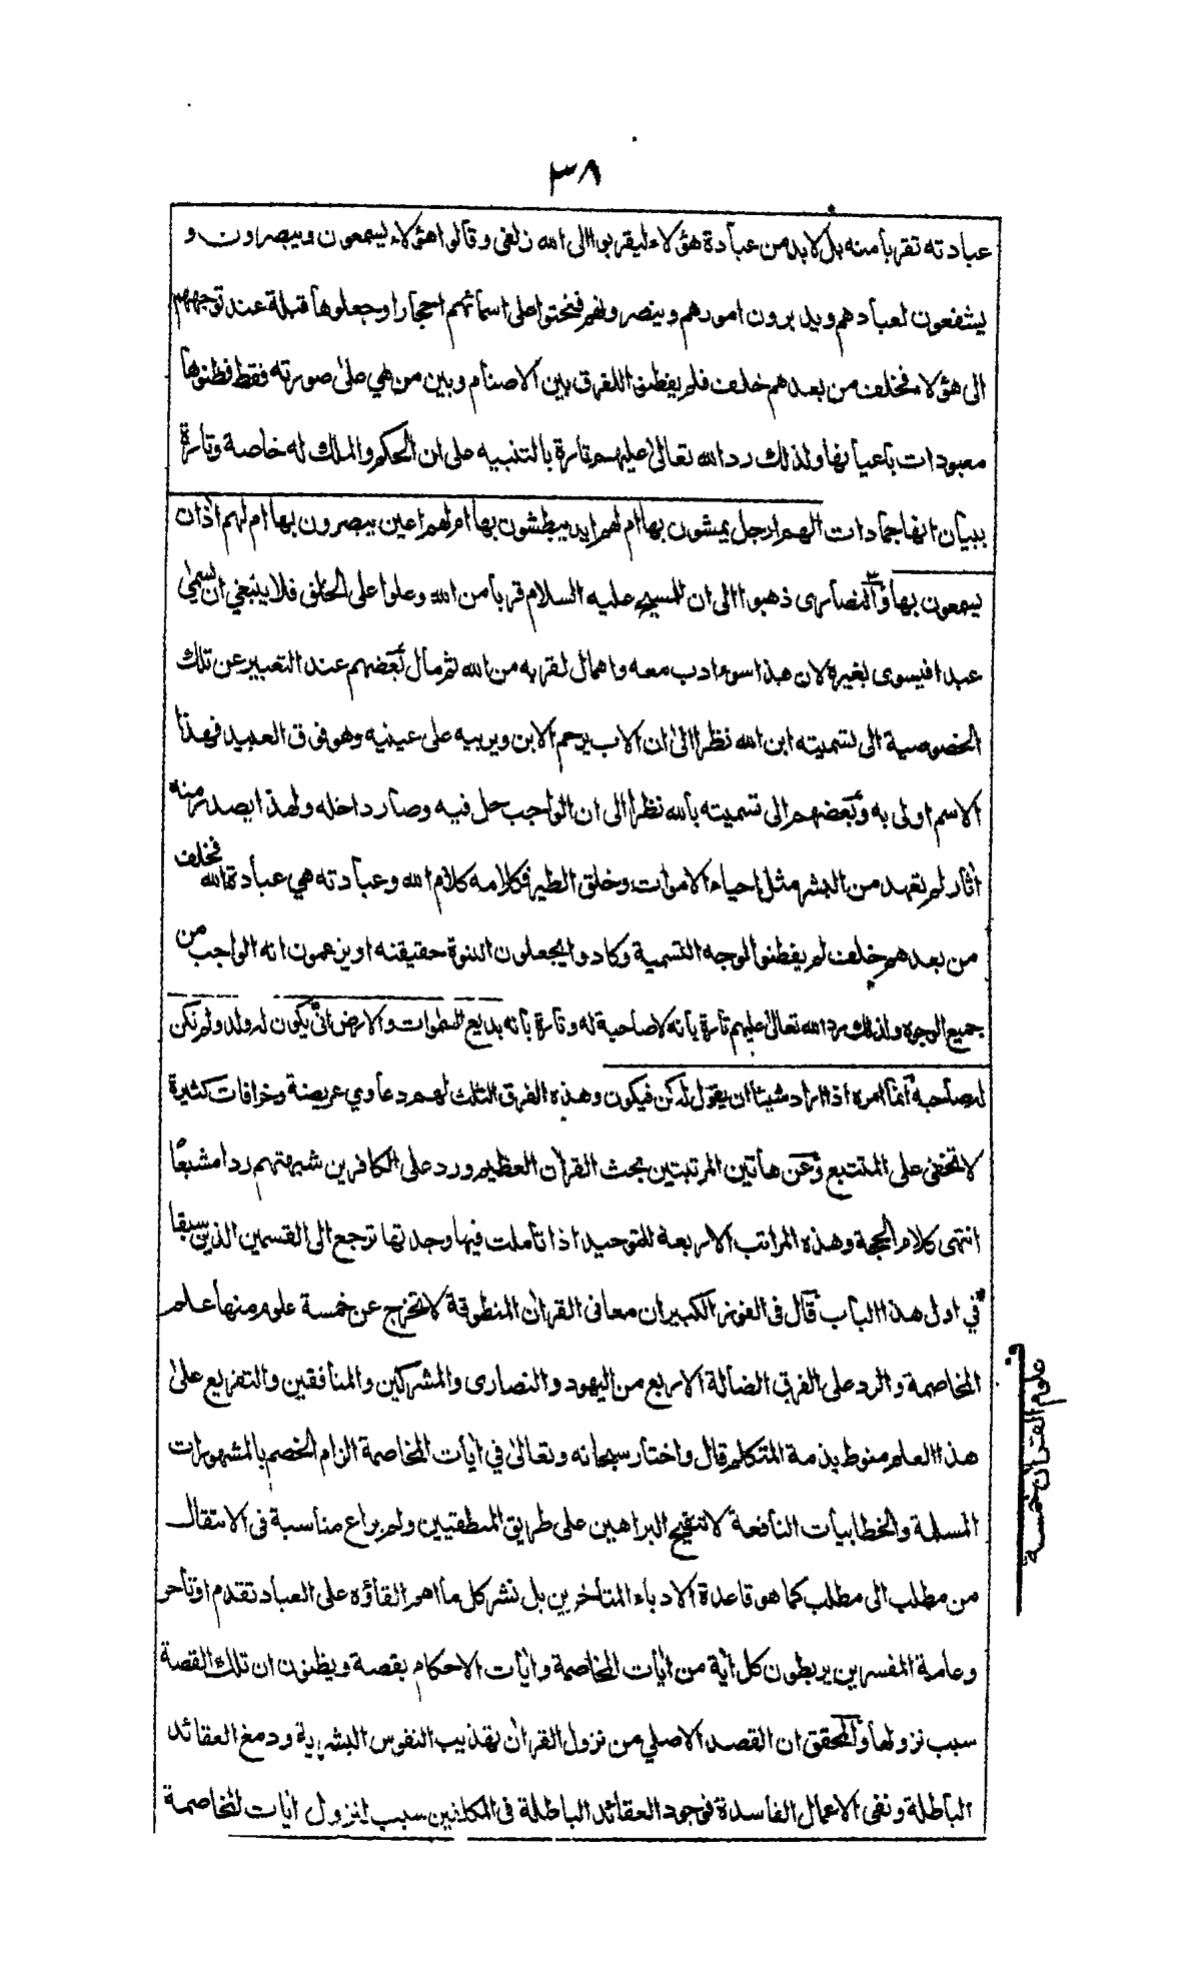 ٣٨
عبادته تقربا منه بل لابد من عبادة هؤلاء ليقربوا الى الله زلفى وقالوا هؤلاء يسمعون ويبصرون و
يشفعون لعبادهم ويدبرون امورهم وينصرونهم فنحتوا على اسمائهم احجارا وجعلوها قبلة عند توجههم
الى هؤلاء فخلف من بعدهم خلف فلم يفطنوا للفرق بين الاصنام وبين من هي على صورته فقط فظنوها
معبودات باعيانها ولذلك رد الله تعالى عليهم تارة بالتنبيه على ان الحكم والملك له خاصة وتارة
ببيان انها جمادات الهم ارجل يمشون بها ام لهم ايد يبطشون بها ام لهم اعين يبصرون بها ام لهم اذان
يسمعون بها ٣ والنصارى ذهبوا الى ان للمسيح عليه السلام قربا من الله وعلوا على الخلق فلا ينبغي ان يسمى
عبدا فيسوى بغيره لان هذا سوء ادب معه واهمال لقربه من الله ثم مال بعضهم عند التعبير عن تلك
الخصوصية الى تسميته ابن الله نظرا الى ان الاب يرحم الابن ويربيه على عينيه وهو فوق العبيد فهذا
الاسم اولى به وبعضهم الى تسميته بالله نظرا الى ان الواجب حل فيه وصار داخله ولهذا يصدر منه
اثار لم تعهد من البشر مثل احياء الاموات وخلق الطير فكلامه كلام الله وعبادته هي عبادة الله فخلف
من بعدهم خلف لم يفطنوا لوجه التسمية وكادوا يجعلون البنوة حقيقنه او يزعمون انه الواجب من
جميع الوجوه ولذلك رد الله تعالى عليهم تارة بانه لا صاحبة له وتارة بانه بديع السموات والارض انى يكون له ولد ولم تكن
له صاحبة انما امره اذا اراد شيئا ان يقول له كن فيكون وهذه الفرق الثلث لهم دعاوي عريضة وخرافات كثيرة
لا تخفى على المتتبع وعن هاتين المرتبتين بحث القران العظيم ورد على الكافرين شبهتهم ردا مشبعا
انتهى كلام الحجة وهذه المراتب الاربعة للتوحيد اذا تاملت فيها وجدتها ترجع الى القسمين الذين سبقا
في اول هذا الباب قال في الفوز الكبير ان معانى القران المنطوقة لا تخرج عن خمسة علوم منها علم
المخاصمة والرد على الفرق الضالة الاربع من اليهود والنصارى والمشركين والمنافقين والتفريع على
هذا العلم منوط بذمة المتكلم قال واختار سبحانه وتعالى في ايات المخاصمة الزام الخصم بالمشهورات
المسلمة والخطابيات النافعة لا تنقيح البراهين على طريق المنطقيين ولم يراع مناسبة فى الانتقال
من مطلب الى مطلب كما هو قاعدة الادباء المتاخرين بل نشر كل ما اهم القاؤه على العباد تقدم او تأخر
وعامة المفسرين يربطون كل اية من ايات المخاصمة وايات الاحكام بقصة ويظنون ان تلك القصة
سبب نزولها والمحقق ان القصد الاصلي من نزول القران تهذيب النفوس البشرية ودمغ العقائد
الباطلة ونفى الاعمال الفاسدة فوجود العقائد الباطلة فى المكلفين سبب لنزول ايات المخاصمة
ف
علوم القران خمسة